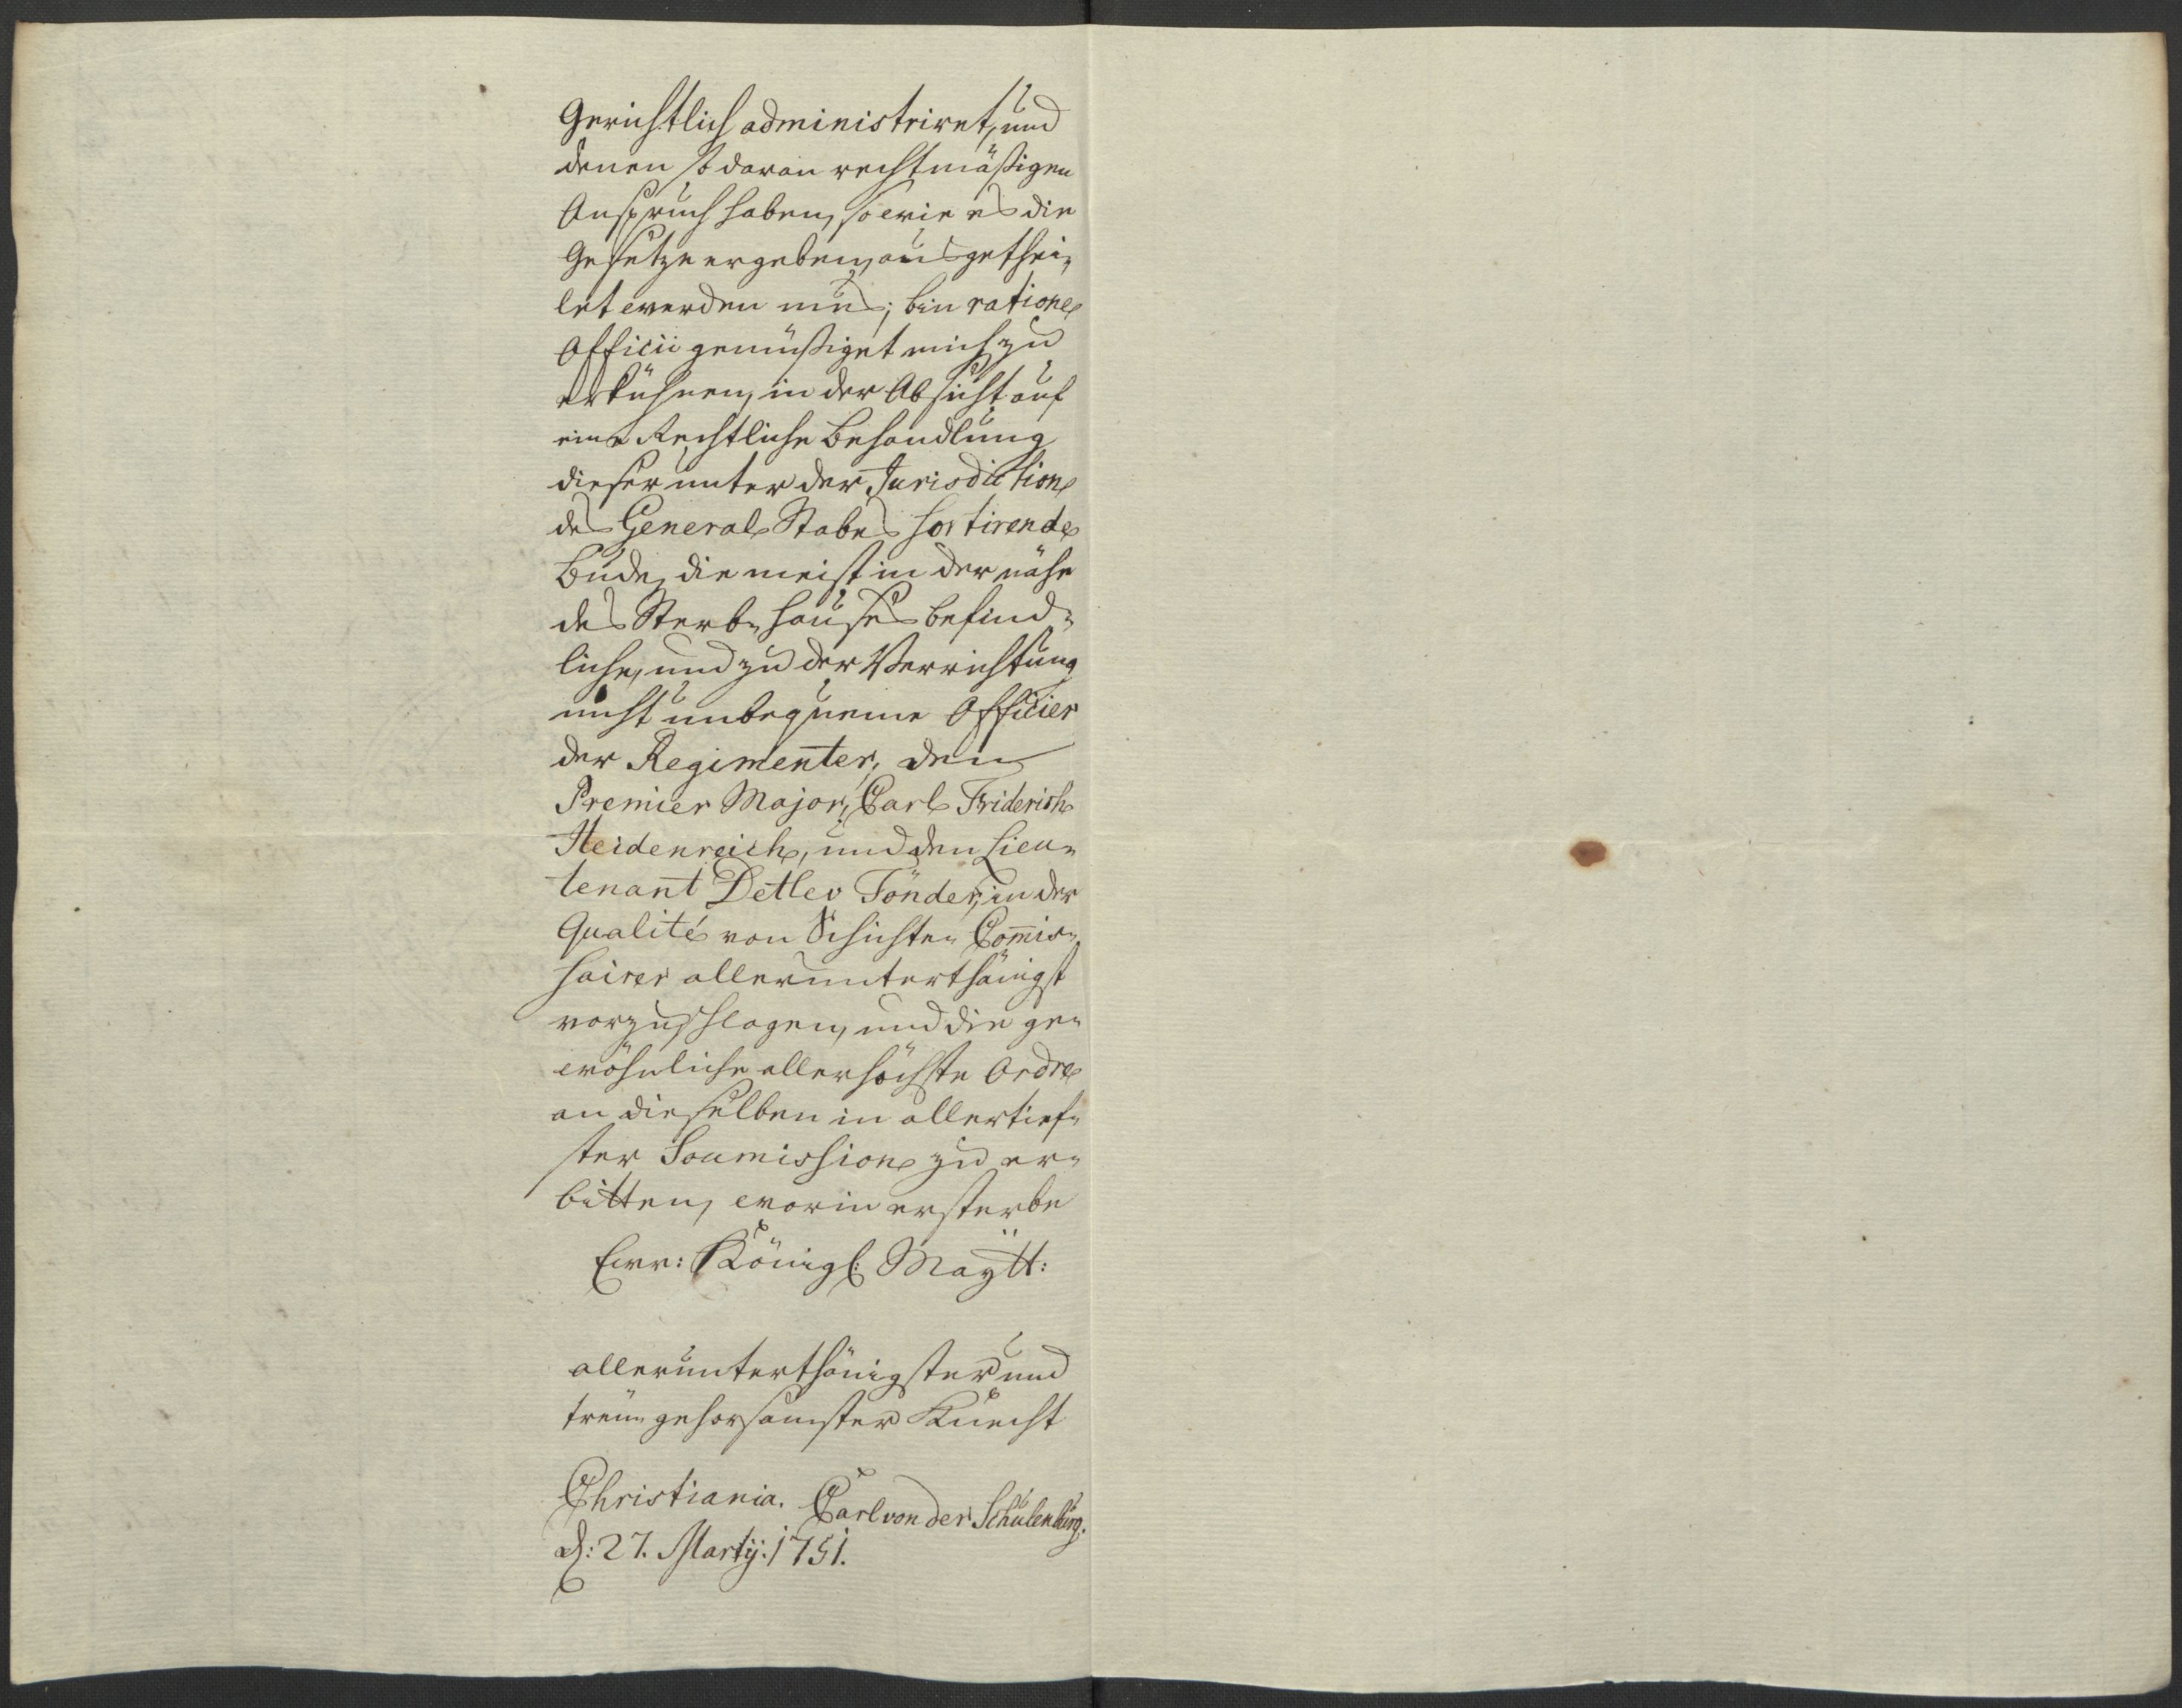 Gerichtlich administriret, und
denen so daran rechtmäßigen
Anspruch haben, so wie es die
Gesetze ergeben, ausgethei-
let werden mus; bin ratione
Officii gemüßiget mich zu
erkühnen, in der Absicht auf
eine Rechtliche Behandlung
dieser unter der Jurisdiction
des General Stabes sortirende
Bude, die meist in der nähe
des Sterb-hauses befind-
liche, und zu der Verrichtung
nicht unbequeme Officier
der Regimenter, den
Premier Major, Carl Friderich
Heidenreich, und den Lieu-
tenant Detlev Tönder, in der
Qualité von Schichte- Com̅is-
sairer allerunterthänigst
vorzuschlagen, und die ge-
wöhnliche allerhöchste Ordre
an dieselben in allertief-
ster Soumission zu er-
bitten, worin ersterbe
Ewr: Königl: Maÿtt:
allerunterthänigster und
treu- gehorsamster Knecht
Christiania. Carl von der Schulenburg.
d: 27. Martij. 1751.